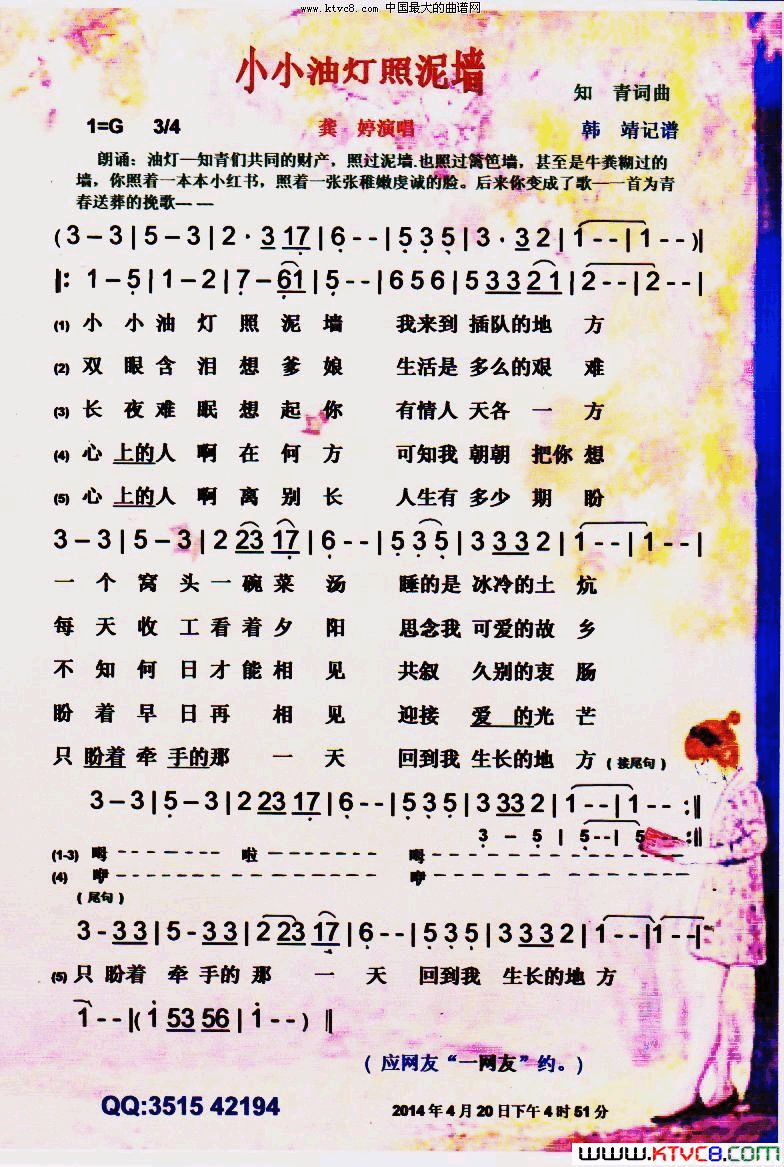 www.ktvc8.com 中国最大的曲谱网
小小油灯照泥墙
知 青词曲
1=G 3/4 龚 婷演唱 韩 靖记谱
朗诵：油灯—知青们共同的财产，照过泥墙.也照过篱笆墙，甚至是牛粪糊过的
墙，你照着一本本小红书，照着一张张稚嫩虔诚的脸。后来你变成了歌—一首为青
春送葬的挽歌— —
( 3 – 3 | 5 – 3 | 2 · 3 17 | 6 - - | 5 3 5 | 3 · 3 2 | 1 - - | 1 - - ) ||
||: 1 – 5 | 1 – 2 | 7 – 61 | 5 - - | 6 5 6 | 5 33 21 | 2 - - | 2 - - |
(1) 小 小 油 灯 照 泥 墙 我来到 插队的地 方
(2) 双 眼 含 泪 想 爹 娘 生活是 多么的艰 难
(3) 长 夜 难 眠 想 起 你 有情人 天各 一 方
(4) 心 上的人 啊 在 何 方 可知我 朝朝 把你 想
(5) 心 上的人 啊 离 别 长 人生有 多少 期 盼
3 – 3 | 5 – 3 | 2 23 17 | 6 - - | 5 3 5 | 3 33 2 | 1 - - | 1 - - |
一 个 窝 头 一 碗 菜 汤 睡的是 冰冷的土 炕
每 天 收 工 看 着 夕 阳 思念我 可爱的故 乡
不 知 何 日 才 能 相 见 共叙 久别的衷 肠
盼 着 早 日 再 相 见 迎接 爱 的光 芒
只 盼着 牵 手的那 一 天 回到我 生长的地 方 (接尾句)
3 – 3 | 5 – 3 | 2 23 17 | 6 - - | 5 3 5 | 3 33 2 | 1 - - | 1 - - :||
3 - 5 | 5 - - | 5 - - :||
(1-3) 呣 - - - - - - - 啦 - - - - - - - 呣 - - - - - - - - - - -
(4) 咿 - - - - - - - - - - - - - - - - 咿 - - - - - - - - - - -
(尾句)
3 - 33 | 5 - 33 | 2 23 17 | 6 - - | 5 3 5 | 3 33 2 | 1 - - | 1 - - |
(5) 只 盼着 牵 手的 那 一 天 回到我 生长的地 方
1 - - | ( 1 53 56 | 1 - - ) ||
( 应网友“一网友”约。)
QQ:3515 42194 2014年4月20日下午4时51分
www.KTVC8.com